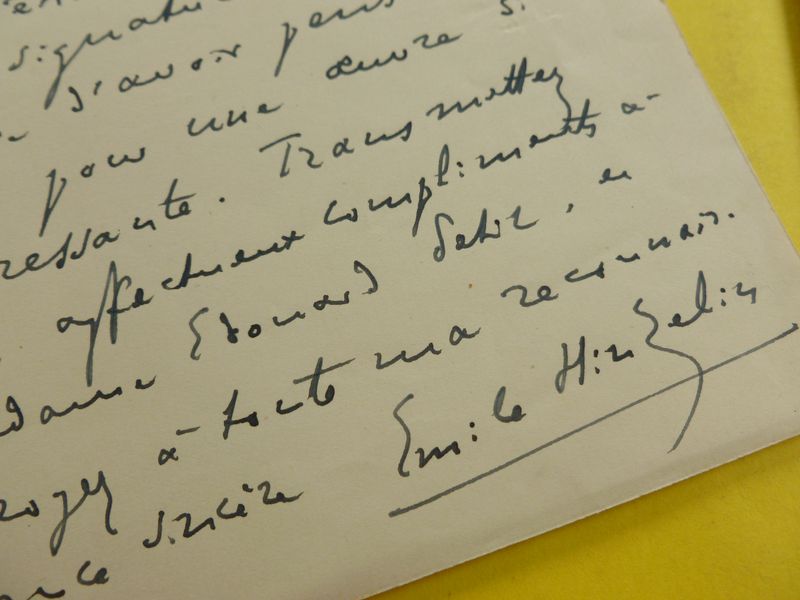 signatu
d'avoir pens
pour une œuvre si
ressante. Transmettez
affectueux compliments à
dame Edouard Petit, en
royez à toute ma reconnais.
ance sincère Emile Hinzelin